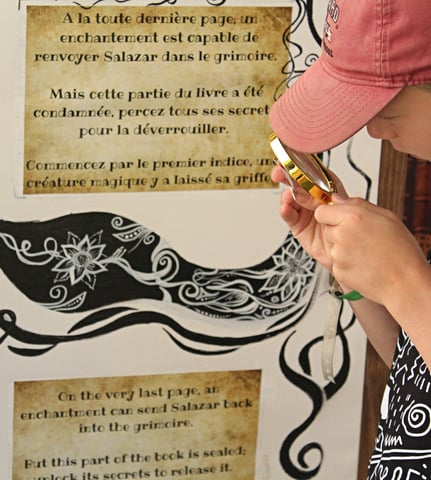 A la toute dernière page, un
enchantement est capable de
renvoyer Salazar dans le grimoire.
Mais cette partie du livre a été
condamnée, percez tous ses secret
pour la déverrouiller.
Commencez par le premier indice, un
créature magique y a laissé sa griffe
On the very last page, an
enchantment can send Salazar back
into the grimoire.
But this part of the book is sealed;
unlock its secrets to release it.